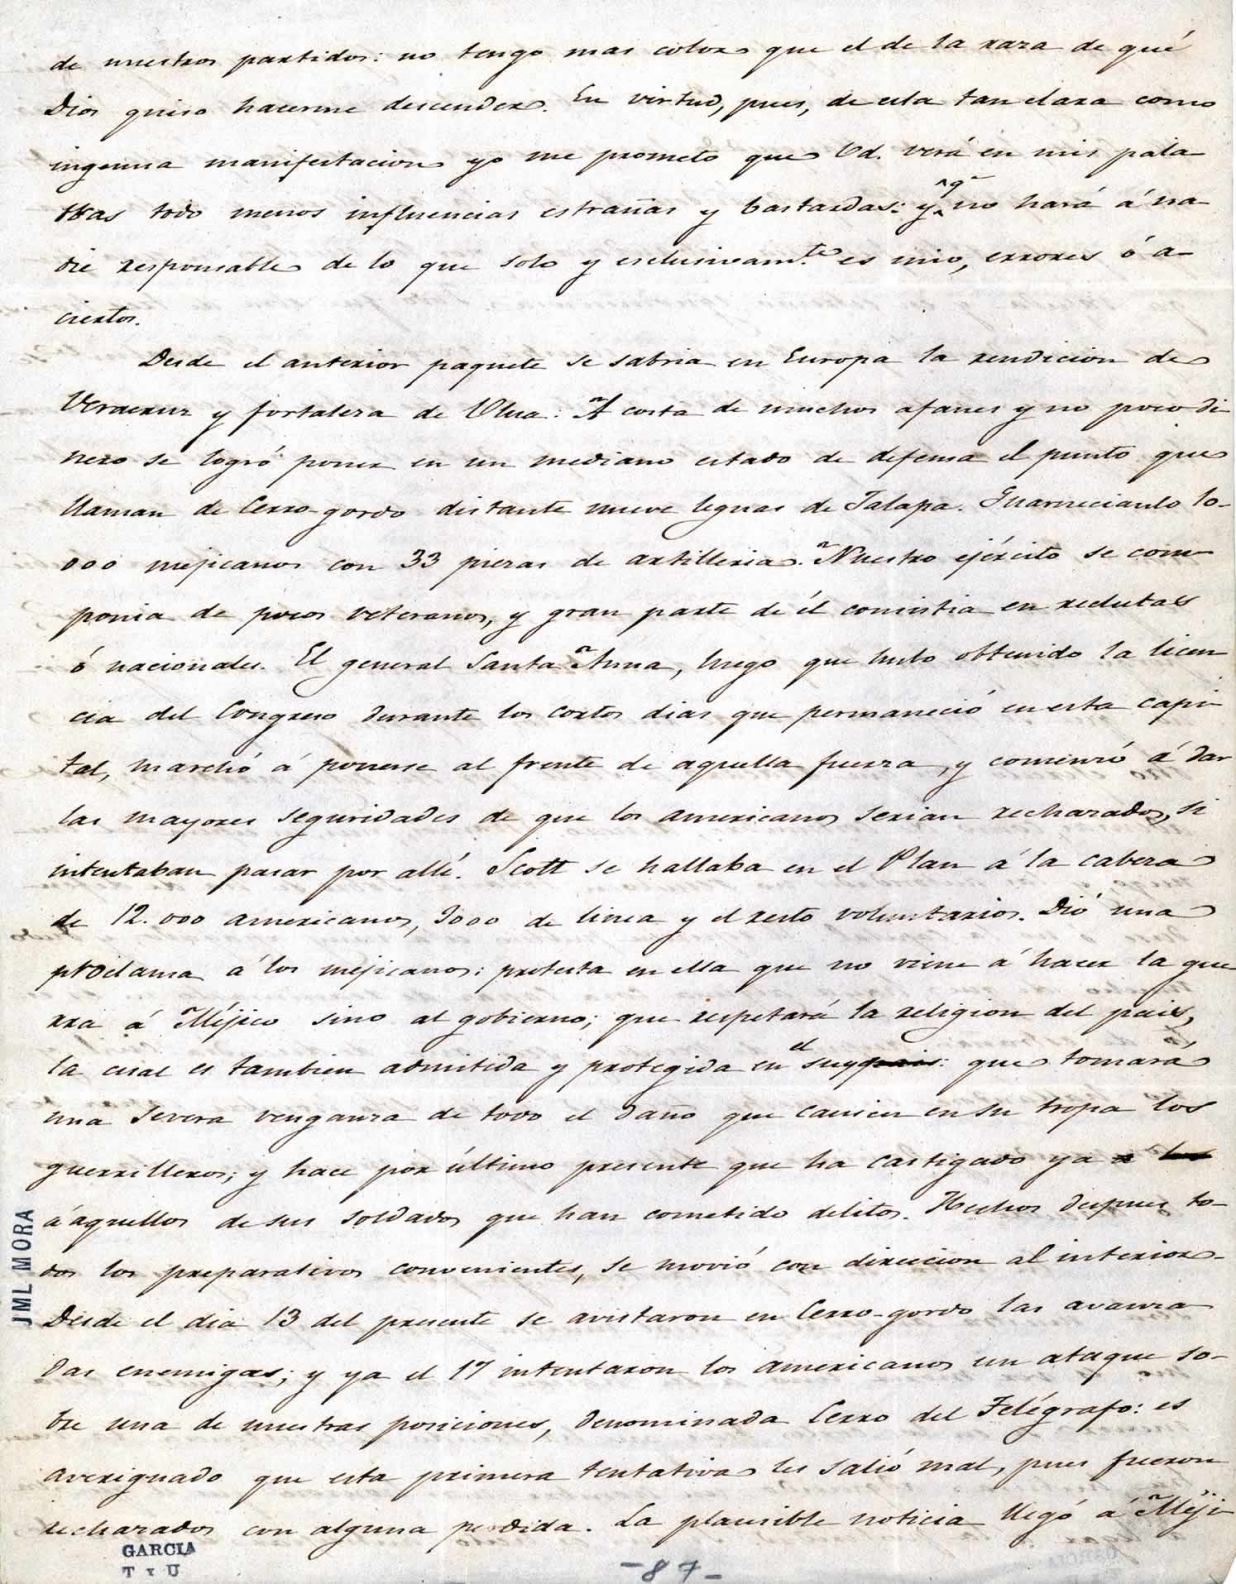 de nuestros partidos: no tengo mas color que el de la raza de qué
Dios quiso hacerme descender. En virtud, pues, de esta tan clara como
ingenua manifestacion yo me prometo que Vd. verá en mis pala
bras todo menos influencias estrañas y bastardas: y qe no hará á na-
die responsable de lo que solo y esclusivamte es mio, errores ó a-
ciertos.
Desde el anterior paquete se sabria en Europa la rendicion de
Veracruz y fortaleza de Ulua. A costa de muchos afanes y no poco di-
nero se logró poner en un mediano estado de defensa el punto que
llaman de Cerro-gordo distante nueve leguas de Jalapa. Guarnecianlo 10-
000 mejicanos con 33 piezas de artilleria. Nuestro ejército se com-
ponia de pocos veteranos, y gran parte de él consistia en reclutas
ó nacionales. El general Santa Anna, luego que hubo obtenido la licen
cia del Congreso durante los cortos dias que permaneció en esta capi-
tal, marchó á ponerse al frente de aquella fuerza, y comenzó á dar
las mayores seguridades de que los americanos serian rechazados, si
intentaban pasar por allí. Scott se hallaba en el Plan á la cabeza
de 12.000 americanos, 3000 de linea y el resto voluntarios. Dió una
proclama á los mejicanos: protesta en ella que no viene á hacer la gue
rra á Méjico sino al gobierno; que respetará la religion del pais,
la cual es tambien admitida y protegida en el suyo: que tomará
una severa venganza de todo el daño que causen en su tropa los
guerrilleros; y hace por último presente que ha castigado ya a los
á aquellos de sus soldados que han cometido delitos. Hechos despues to-
dos los preparativos convenientes, se movió con direccion al interior.
Desde el dia 13 del presente se avistaron en Cerro-gordo las avanza
das enemigas; y ya el 17 intentaron los americanos un ataque so-
bre una de nuestras posiciones, denominada Cerro del Telégrafo: es
averiguado que esta primera tentativa les salió mal, pues fueron
rechazados con alguna perdida. La plausible noticia llegó á Méji-
JML MORA
GARCIA
T y U
-87-